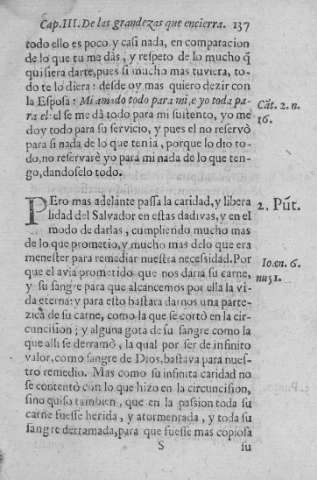 Cap. III. De las grandezas que encierra. 137
todo ello es poco y casi nada, en comparacion
de lo que tu me das, y respeto de lo mucho q̃
quisiera darte, pues si mucho mas tuviera, to-
do te lo diera: desde oy mas quiero dezir con
la Esposa: Mi amado todo para mi, e yo toda pa-
ra el: el se me dà todo para mi sustento, yo me
doy todo para su servicio, y pues el no reservò
para si nada de lo que tenia, porque lo dio to-
do, no reservarè yo para mi nada de lo que ten-
go, dandoselo todo.
Cãt. 2. n.
16.
PEro mas adelante passa la caridad, y libera
lidad del Salvador en estas dadivas, y en el
modo de darlas, cumpliendo mucho mas
de lo que prometio, y mucho mas delo que era
menester para remediar nuestra necessidad. Por
que el avia prometido que nos daria su carne,
y su sangre para que alcancemos por ella la vi-
da eterna: y para esto bastara darnos una parte-
zica de su carne, como la que se cortò en la cir-
cuncision; y alguna gota de su sangre como la
que alli se derramò, la qual por ser de infinito
valor, como sangre de Dios, bastava para nues-
tro remedio. Mas como su infinita caridad no
se contentò con lo que hizo en la circuncision,
sino quiso tambien, que en la passion toda su
carne fuesse herida, y atormentada, y toda su
sangre derramada, para que fuesse mas copiosa
2. Pũt.
Ioan. 6.
nu 51.
S su